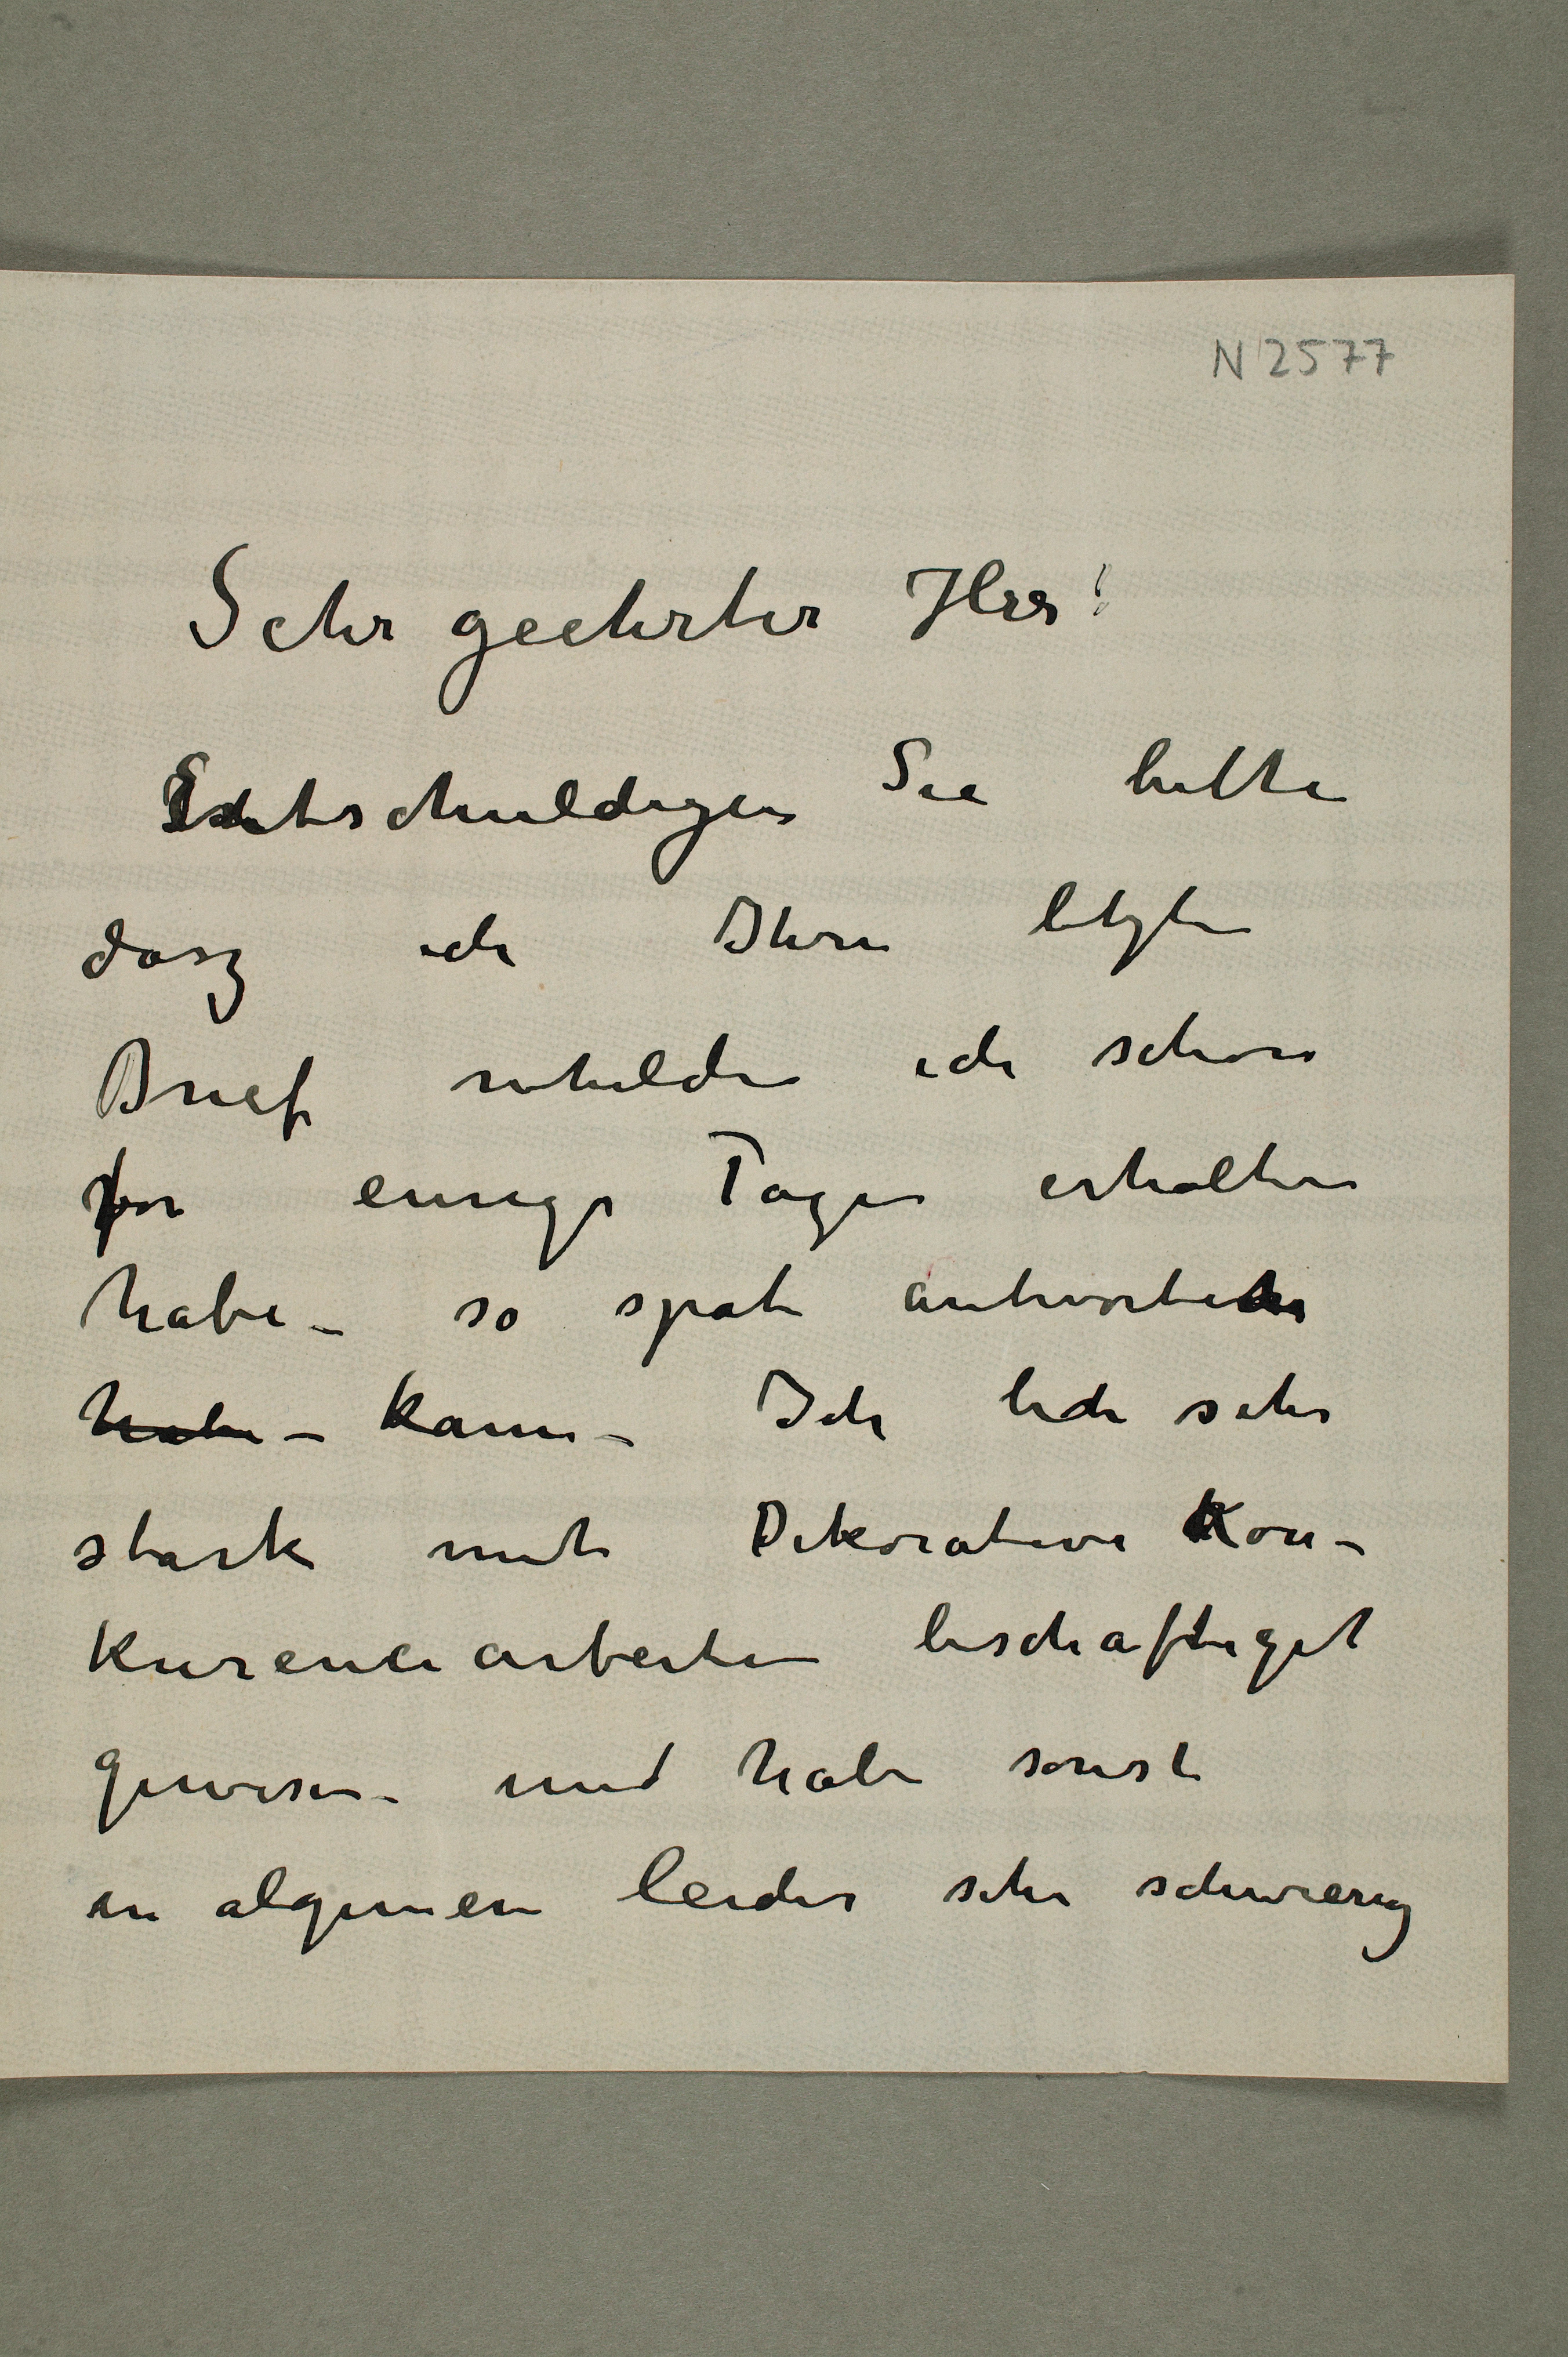 N 2577
Sehr geehrter Herr!
Entschuldigen Sie bitte
dasz ich Ihren letzten
Brief ich schon
for einige Tagen erhalten
habe – so spat antworten
habe – kann – Ich bich sehr
stark mit Dekorative Kon-
kurencearbeiten beschaftiget
gewesen – und habe sonst
in algemein leider sehr schwierig